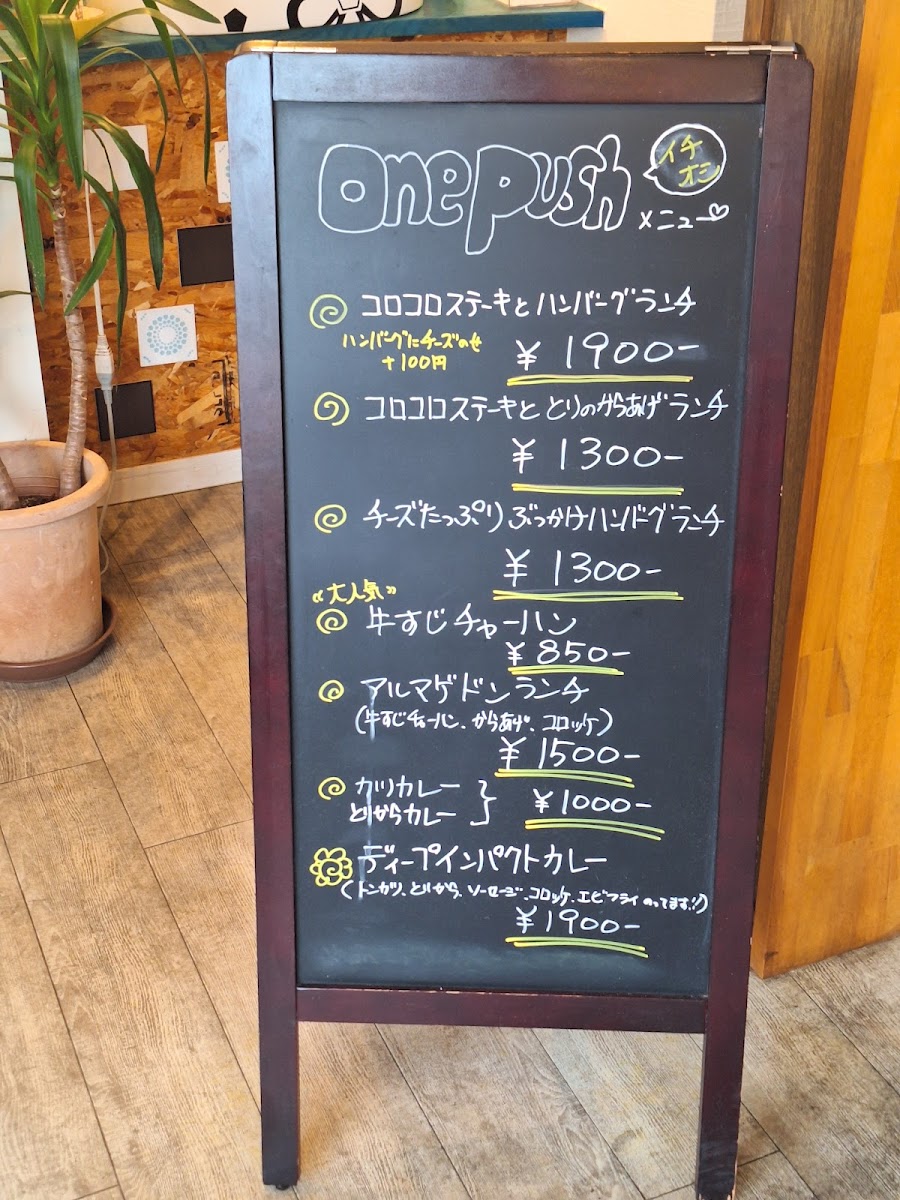 One Push
イチ
オシ
メニュー
コロコロステーキとハンバーグランチ
ハンバーグにチーズのせ
+100円
¥1900-
コロコロステーキととりのからあげランチ
¥1300-
チーズたっぷりぶっかけハンバーグランチ
¥1300-
"大人気"
牛すじチャーハン
¥850-
アルマゲドンランチ
(牛すじチャーハン、からあげ、コロッケ)
¥1500-
カツカレー
とりからカレー
} ¥1000-
ディープインパクトカレー
(トンカツ、とりから、ソーセージ、コロッケ、エビフライのってます!!)
¥1900-